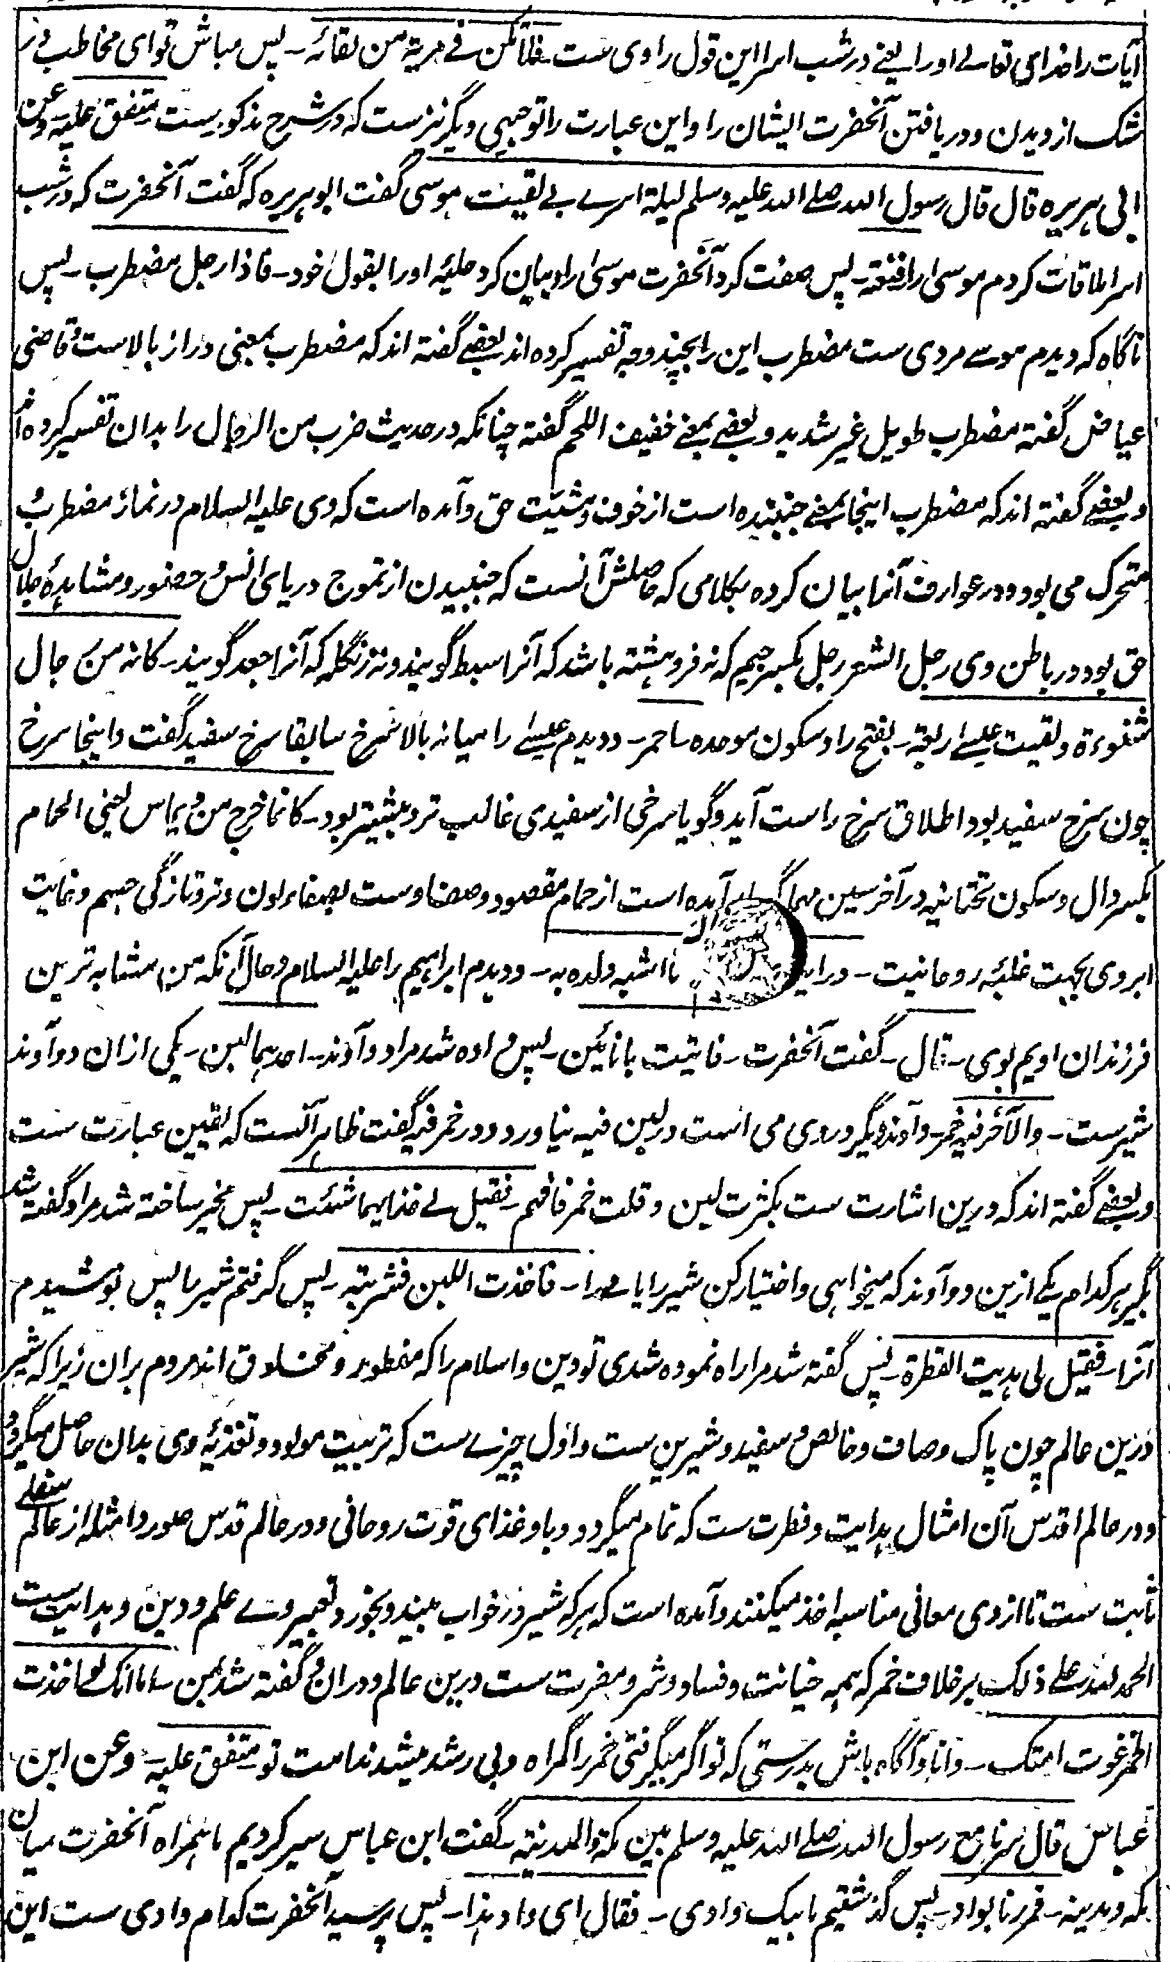 آیات را خدای تعالی اورا یعنی در شب اسرا این قول راوی ست۔ فلا تکن فے مریة من لقائہ۔ پس مباش تو ای مخاطب در
شک از دیدن و دریافتن آنحضرت ایشان را و این عبارت را توجیہی دیگر نیز ست کہ در شرح مذکورست۔ متفق علیہ۔ وعن
ابی ہریرہ قال قال رسول اللہ صلے اللہ علیہ وسلم لیلة اسرے بے لقیت موسی گفت ابو ہریرہ کہ گفت آنحضرت کہ در شب
اسرا ملاقات کردم موسی را فنعتہ۔ پس صفت کرد آنحضرت موسی را و بیان کرد حلیۂ اورا بقول خود۔ فاذا رجل مضطرب۔ پس
ناگاہ کہ دیدم موسے مردی ست مضطرب این را بچند وجہ تفسیر کردہ اند بعضے گفتہ اند کہ مضطرب بمعنی دراز بالاست و قاضی
عیاض گفتہ مضطرب طویل غیر شدید و بعضے بمعنے خفیف اللحم گفتہ چنانکہ در حدیث ضرب من الرجال را بدان تفسیر کردہ اند
و بعضے گفتہ اند کہ مضطرب اینجا بمعنے جنبندہ است از خوف و خشیت حق و آمدہ است کہ وی علیہ السلام در نماز مضطرب و
متحرک می بود و در عوارف آنرا بیان کردہ بکلامی کہ حاصلش آنست کہ جنبیدن از تموج دریای انس و حضور و مشاہدۂ جلال
حق بود در باطن وی رجل الشعر رجل بکسر جیم کہ نہ فروہشتہ باشد کہ آنرا سبط گویند و نہ زنگلہ کہ آنرا جعد گویند۔ کانہ من رجال
شنوءة ولقیت عیسے ربعة۔ بفتح را و سکون موحدہ۔ احمر۔ و دیدم عیسے را میانہ بالا سرخ سابقا سرخ سفید گفت و اینجا سرخ
چون سرخ سفید بود اطلاق سرخ راست آید و گویا سرخی از سفیدی غالب تر و بیشتر بود۔ کانما خرج من دیماس یعنی الحمام
بکسر دال و سکون تحتانیہ در آخر سین مہملہ گویا آمدہ است از حمام مقصود وصف اوست بصفاء لون و تر و تازگی جسم و نہایت
ابروی بجہت غلبۂ روحانیت۔ ورایت انا اشبہ ولدہ بہ۔ و دیدم ابراہیم را علیہ السلام و حال آنکہ من مشابہ ترین
فرزندان اویم بوی۔ قال۔ گفت آنحضرت۔ فاتیت بانائین۔ پس دادہ شد مرا دو آوند۔ احدہما لبن۔ یکی ازان دو آوند
شیرست۔ والآخر فیہ خمر۔ و آوند دیگر در وی می است در لبن فیہ نیاورد و در خمر فیہ گفت ظاہر آنست کہ تفنن عبارت ست
و بعضے گفتہ اند کہ درین اشارت ست بکثرت لبن و قلت خمر فافہم۔ فقیل لے خذ ایہما شئت۔ پس مخیر ساختہ شد مرا و گفتہ شد
بگیر ہر کدام یکے ازین دو آوند کہ میخواہی و اختیار کن شیر را یا مے را۔ فاخذت اللبن فشربتہ۔ پس گرفتم شیر را پس نوشیدم
آنرا۔ فقیل لی ہدیت الفطرة۔ پس گفتہ شد مرا راہ نمودہ شدی تو دین و اسلام را کہ مفطور و مخلوق اند مردم بران زیرا کہ شیر
درین عالم چون پاک و صاف و خالص و سفید و شیرین ست و اول چیزے ست کہ تربیت مولود و تغذیۂ وی بدان حاصل میگردد
و در عالم اقدس آن امثال ہدایت و فطرت ست کہ تمام میگردد و باو غذای قوت روحانی و در عالم قدس صور و امثلہ از عالم سفلے
ثابت ست تا از وی معانی مناسبہ اخذ میکنند و آمدہ است کہ ہر کہ شیر در خواب بیند و بخورد تعبیر وے علم و دین و ہدایت ست
الحمد للہ علے ذلک بر خلاف خمر کہ ہمہ خیانت و فساد و شر و مضرت ست درین عالم و دران و گفتہ شد بمن۔ اما انک لو اخذت
الخمر غوت امتک۔ دانا و آگاہ باش بدرستی کہ تو اگر میگرفتی خمر را گمراہ و بی رشد میشدند امت تو۔ متفق علیہ۔ وعن ابن
عباس قال سرنا مع رسول اللہ صلے اللہ علیہ وسلم بین مکة والمدینة۔ گفت ابن عباس سیر کردیم ما ہمراہ آنحضرت میان
مکہ و مدینہ۔ فمررنا بواد۔ پس گذشتیم ما بیک وادی۔ فقال ای واد ہذا۔ پس پرسید آنحضرت کدام وادی ست این